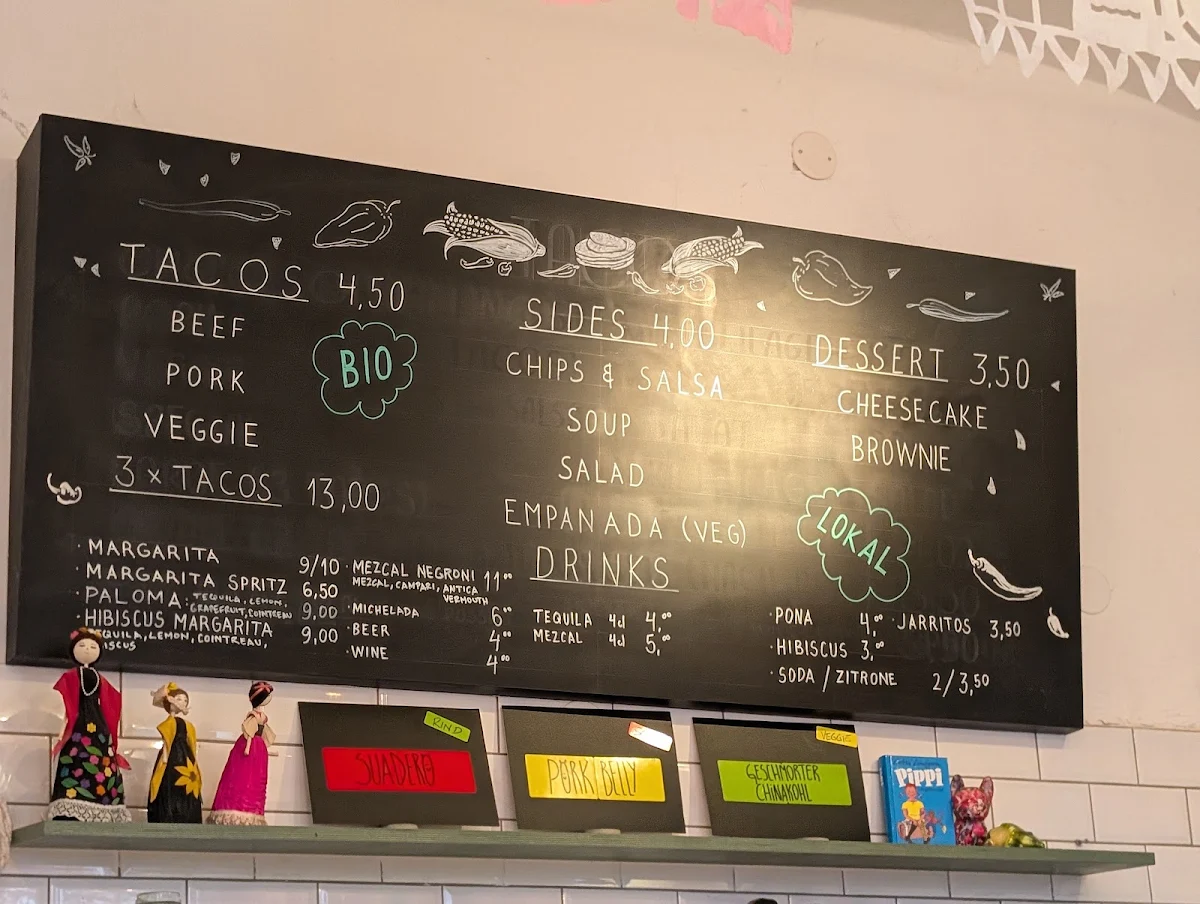 TACOS 4,50
BEEF
PORK
VEGGIE
BIO
3 x TACOS 13,00
SIDES 4,00
CHIPS & SALSA
SOUP
SALAD
EMPANADA (VEG)
DESSERT 3,50
CHEESECAKE
BROWNIE
LOKAL
· MARGARITA 9/10
· MARGARITA SPRITZ 6,50
· PALOMA: TEQUILA, LEMON, GRAPEFRUIT, COINTREAU 9,00
· HIBISCUS MARGARITA 9,00
TEQUILA, LEMON, COINTREAU,
· MEZCAL NEGRONI 11,00
MEZCAL, CAMPARI, ANTICA
VERMOUTH
· MICHELADA 6,00
· BEER 4,00
· WINE 4,00
DRINKS
TEQUILA 4cl 4,00
MEZCAL 4cl 5,
· PONA 4,00
· HIBISCUS 3,00
· SODA / ZITRONE 2/3,50
· JARRITOS 3,50
RIND
SUADERO
PORK BELLY
VEGGIE
GESCHMORTER
CHINAKOHL
Pippi